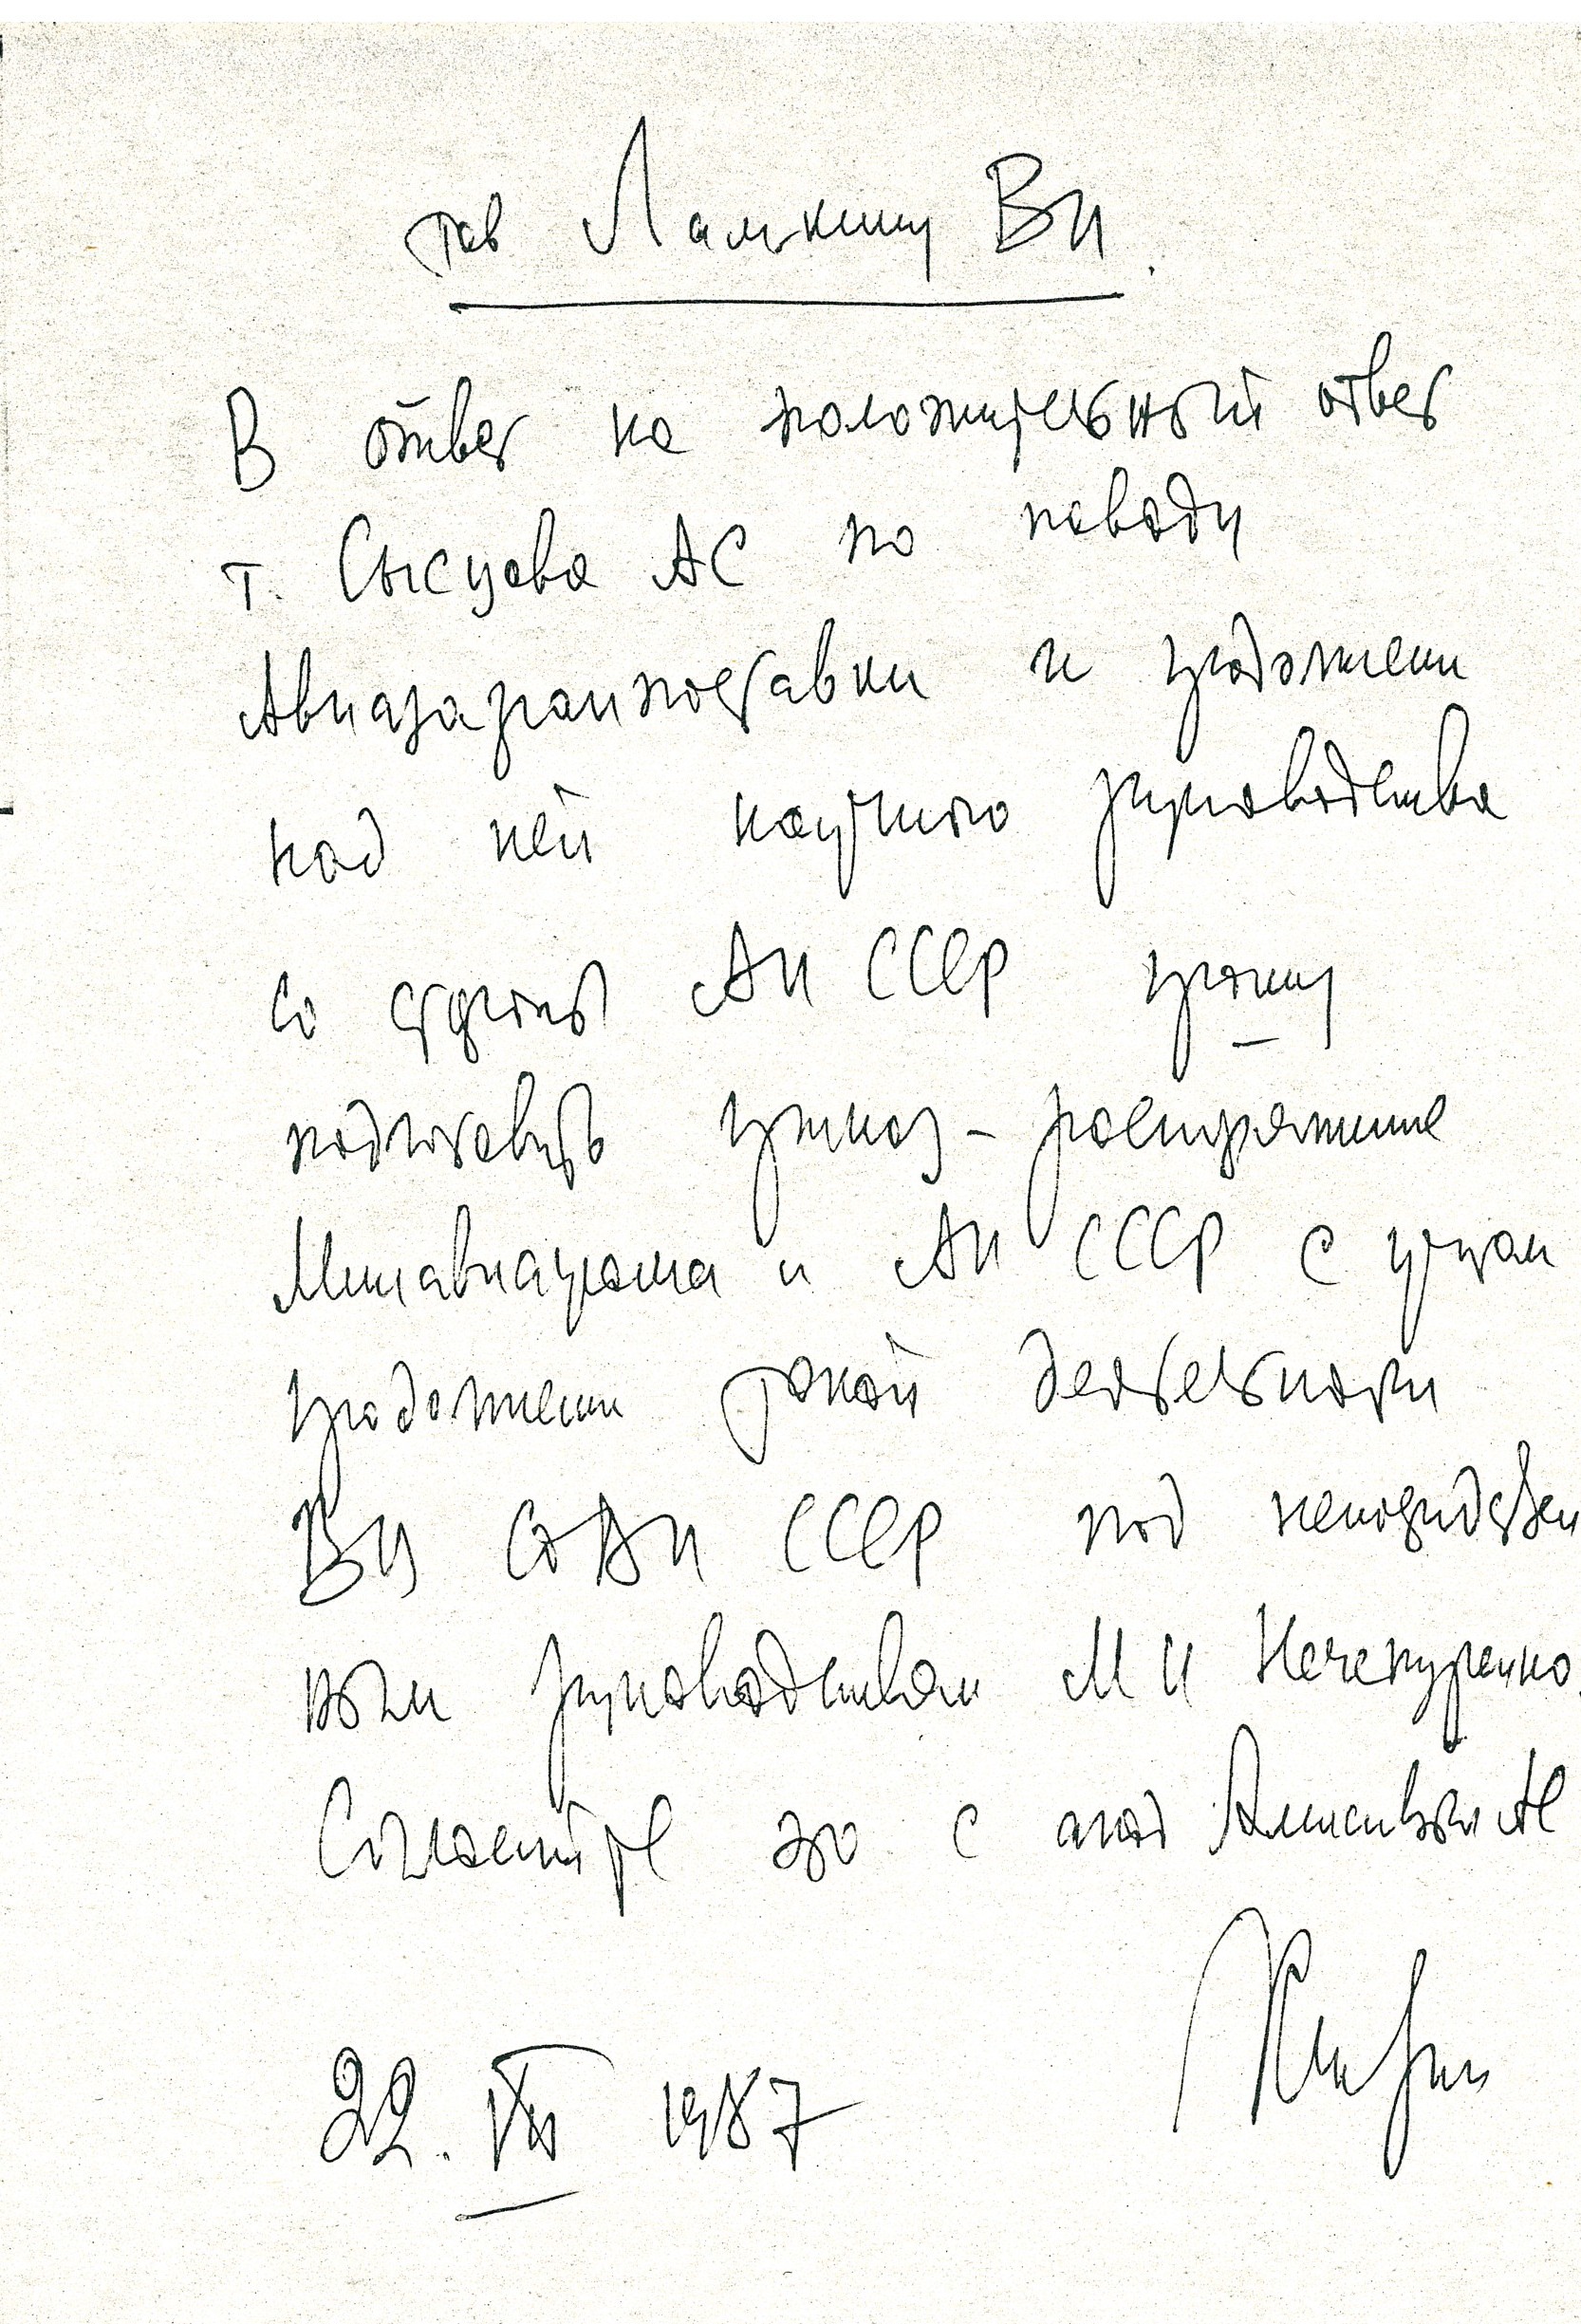 тов Лямкину ВИ.
В ответ на положительный ответ
т. Сысцова АС по поводу
Авиазагранпоставки и продолжении
над ней научного руководства
со стороны АН СССР прошу
подготовить приказ-распоряжение
Минавиапрома и АН СССР с учетом
продолжении такой деятельности
ВЦ СОАН СССР под непосредствен
ным руководством МИ Нечепуренко.
Согласуйте это с акад Алексеевым АС
22. VII 1987